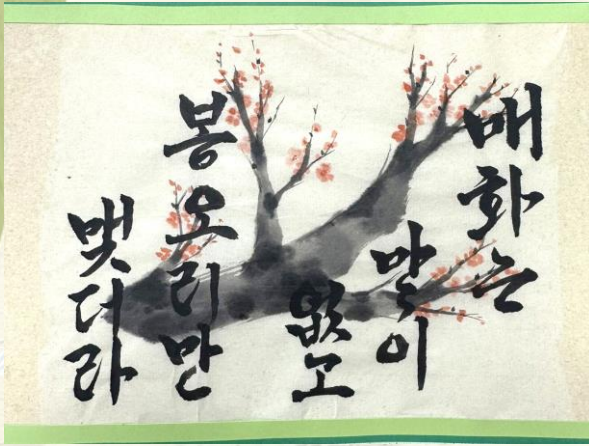 매화는
말이
없고
몽오리만
맺더라